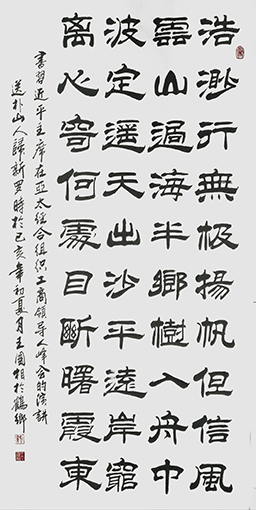 浩渺行無极揚帆但信風
雲山過海半鄉樹入舟中
波定遥天出沙平遠岸窮
离心寄何處目斷曙霞東
書習近平主席在亞太经合组织工商领导人峰会的演讲
送朴山人歸新罗時於己亥年初夏月王国相於鶴鄉